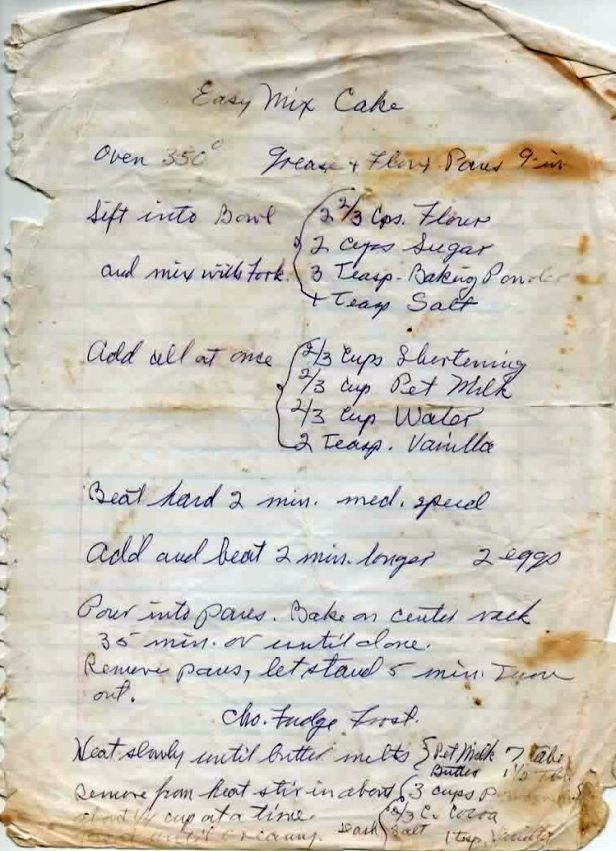 Easy Mix Cake
Oven 350° Grease + Flour Pans 9-in
Sift into Bowl 2 2/3 Cps. Flour
2 cups Sugar
and mix with Fork. 3 Teasp. Baking Powder
Teasp Salt
Add all at once 2/3 Cups Shortening
2/3 cup Pet Milk
2/3 Cup Water
2 Teasp. Vanilla
Beat hard 2 min. med. speed
Add and beat 2 min. longer 2 eggs
Pour into pans. Bake on center rack
35 min. or until done.
Remove pans, let stand 5 min. Turn
out.
Cho. Fudge Frost.
Heat slowly until butter melts Pet Milk 7
Butter 1 1/2
Remove from heat stir in about 3 cups
cup at a time. 2/3 C. Cocoa
until creamy. Dash Salt 1 tsp. Vanilla